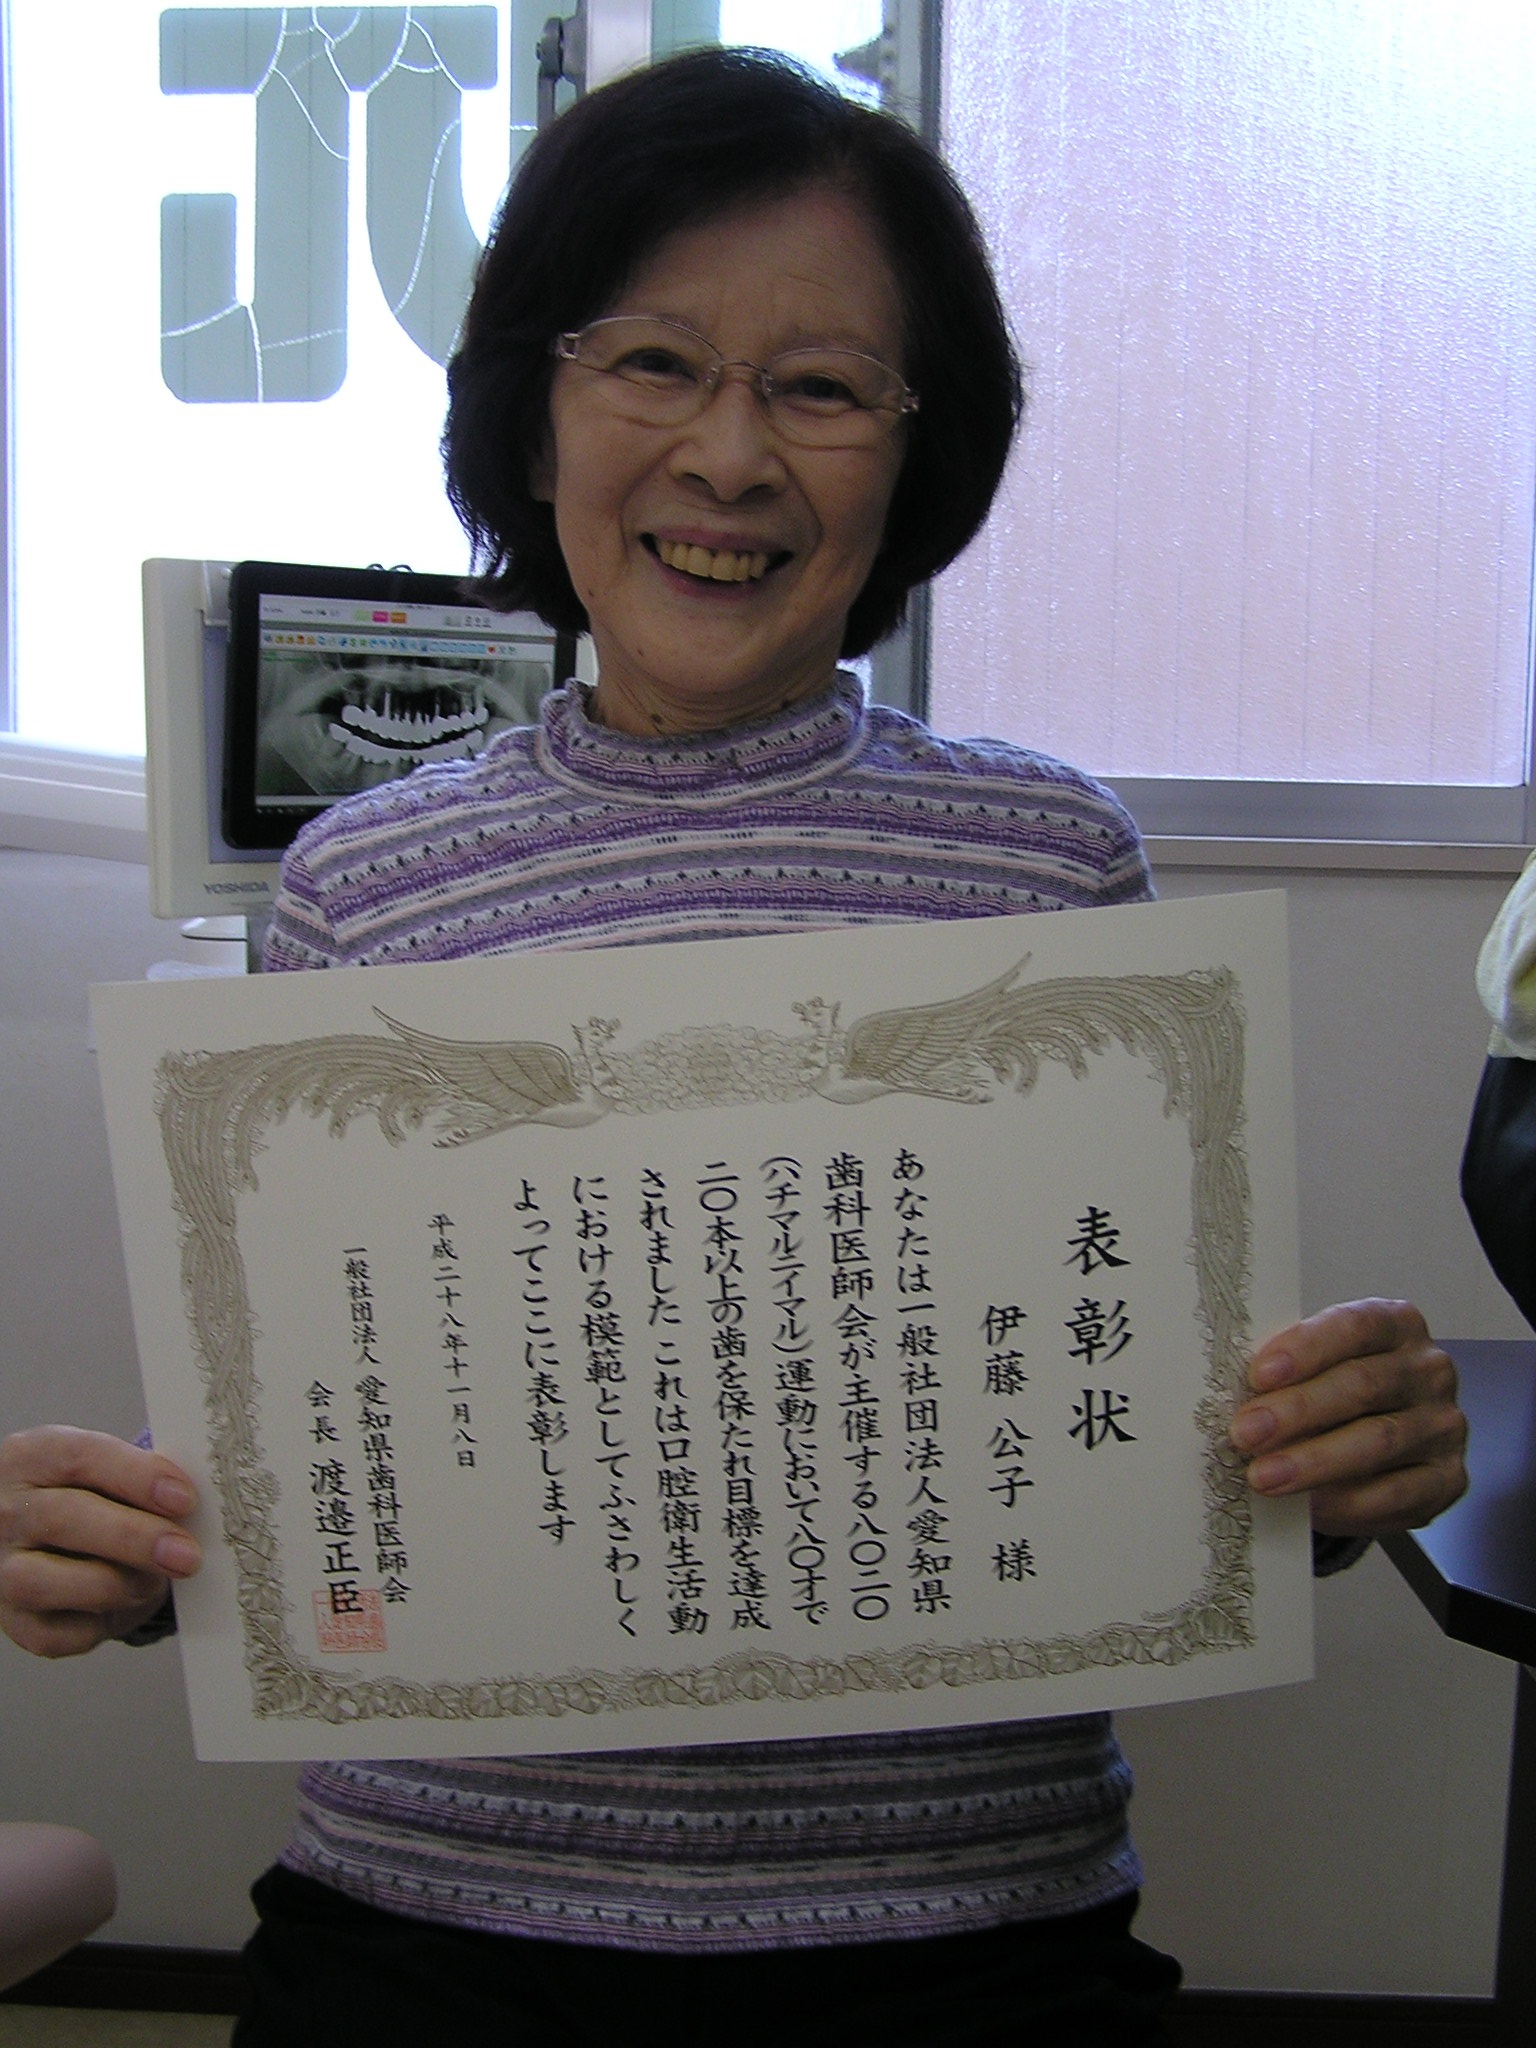 表彰状
伊藤 公子 様
あなたは一般社団法人愛知県
歯科医師会が主催する八〇二〇
(ハチマルニイマル)運動において八〇才で
二〇本以上の歯を保たれ目標を達成
されました これは口腔衛生活動
における模範としてふさわしく
よってここに表彰します
平成二十八年十一月八日
一般社団法人 愛知県歯科医師会
会長 渡邉正臣
YOSHIDA